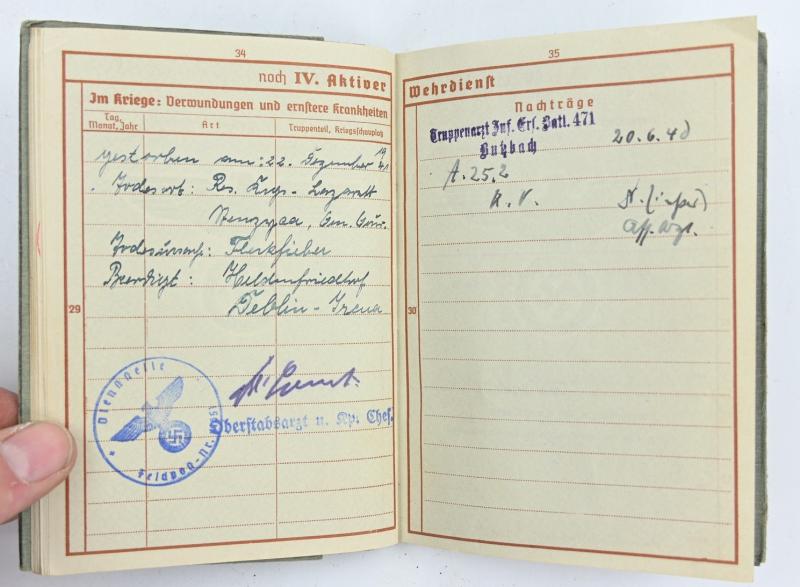 34
noch IV. Aktiver
Im Kriege: Verwundungen und ernstere Krankheiten
Tag, Monat, Jahr
Art
Truppenteil, Kriegsschauplatz
gestorben am: 22. Dezember 1941
Todesort: Res. Krgs-Lazarett
Gen. Gouv.
Todesursache: Fleckfieber
Beerdigt: Heldenfriedhof
Deblin-Irena
29
Dienststelle
Feldpost-Nr.
Oberstabsarzt u. Kp. Chef.
35
Wehrdienst
Nachträge
Truppenarzt Inf. Ers. Batl. 471
Butzbach
20.6.40
A. 25,2
k. V.
Ass. Arzt.
30